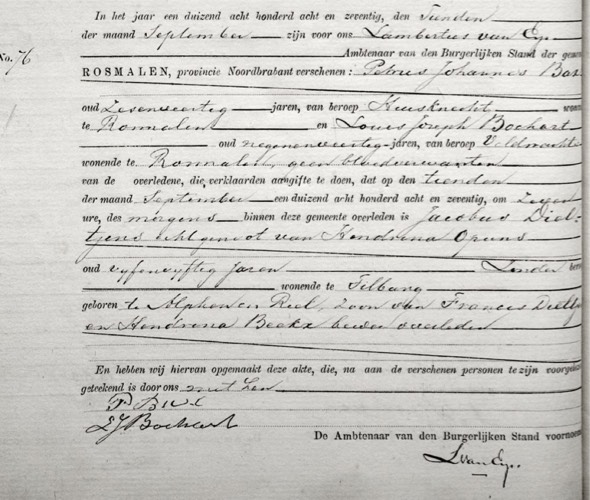 In het jaar een duizend acht honderd acht en zeventig, den Tienden
der maand September zijn voor ons Lambertus van Eyp.
No. 76
Ambtenaar van den Burgerlijken Stand der geme
ROSMALEN, provincie Noordbrabant verschenen: Petrus Johannes
oud Zesenveertig jaren, van beroep Huisknecht won
te Rosmalen en Louis Joseph Bochart
oud negenenveertig jaren, van beroep Veldwachter
wonende te Rosmalen, geen bloedverwanten
van de overledene, die verklaarden aangifte te doen, dat op den tienden
der maand September een duizend acht honderd acht en zeventig, om Zeven
ure, des morgens binnen deze gemeente overleden is Jacobus Diel-
tjens echtgenoot van Hendrina
oud vyfenvyftig jaren Zonder bero
wonende te Tilburg
geboren te Alphen en Riel, zoon van Francis
en Hendrina Beekx beiden overleden
En hebben wij hiervan opgemaakt deze akte, die, na aan de verschenen personen te zijn voorgel
geteekend is door ons met hen
LJ Bochart
De Ambtenaar van den Burgerlijken Stand voornoem
L van Eyp.